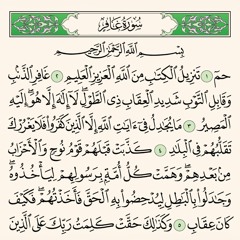 سُورَةُ غَافِرٍ
بِسْمِ اللَّهِ الرَّحْمَٰنِ الرَّحِيمِ
حمٓ ١ تَنزِيلُ الْكِتَٰبِ مِنَ اللَّهِ الْعَزِيزِ الْعَلِيمِ ٢ غَافِرِ الذَّنۢبِ
وَقَابِلِ التَّوْبِ شَدِيدِ الْعِقَابِ ذِي الطَّوْلِ لَآ إِلَٰهَ إِلَّا هُوَ إِلَيْهِ
الْمَصِيرُ ٣ مَا يُجَٰدِلُ فِيٓ ءَايَٰتِ اللَّهِ إِلَّا الَّذِينَ كَفَرُوا فَلَا يَغْرُرْكَ
تَقَلُّبُهُمْ فِي الْبِلَٰدِ ٤ كَذَّبَتْ قَبْلَهُمْ قَوْمُ نُوحٍ وَالْأَحْزَابُ
مِنۢ بَعْدِهِمْ وَهَمَّتْ كُلُّ أُمَّةٍۭ بِرَسُولِهِمْ لِيَأْخُذُوهُ
وَجَٰدَلُوا بِالْبَٰطِلِ لِيُدْحِضُوا بِهِ الْحَقَّ فَأَخَذْتُهُمْ فَكَيْفَ
كَانَ عِقَابِ ٥ وَكَذَٰلِكَ حَقَّتْ كَلِمَتُ رَبِّكَ عَلَى الَّذِينَ